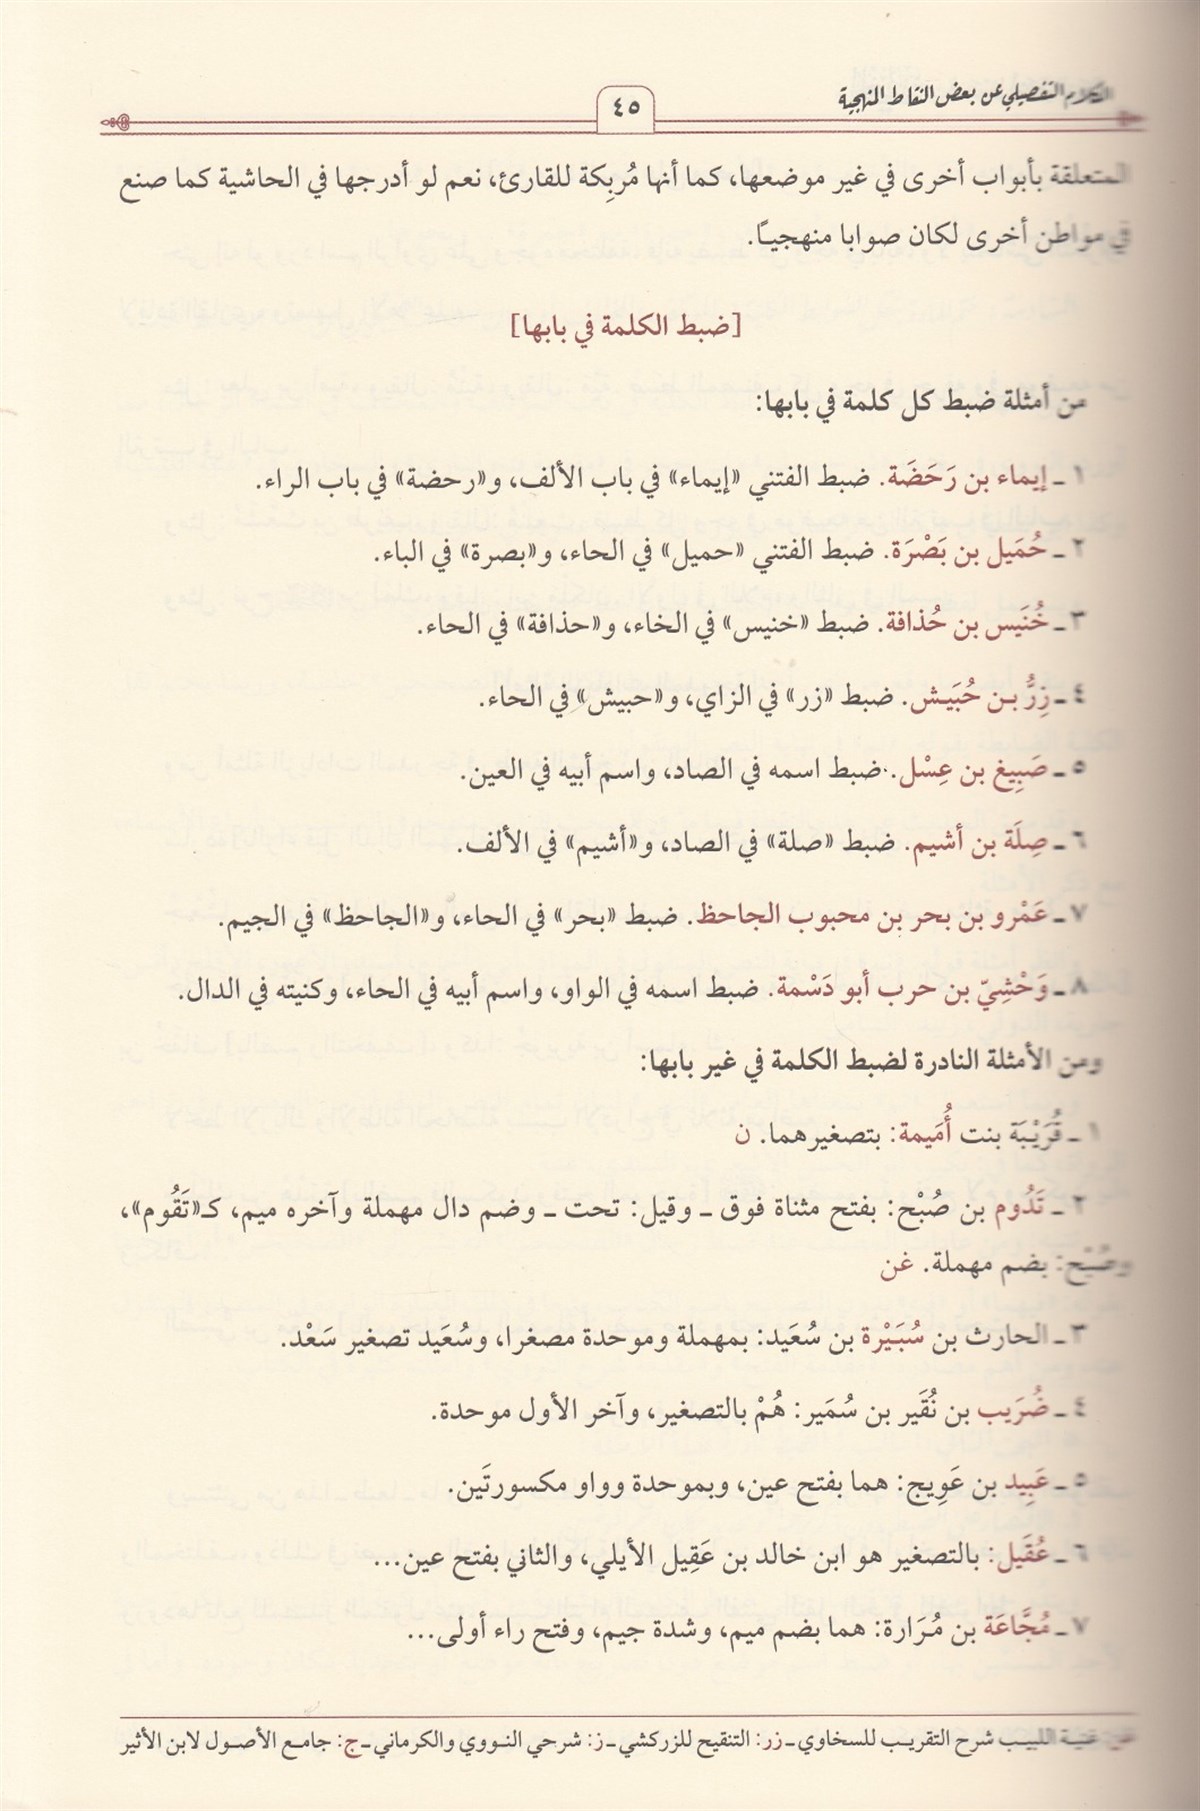 الكلام التفصيلي عن بعض النقاط المنهجية
٤٥
المتعلقة بأبواب أخرى في غير موضعها، كما أنها مُربِكة للقارئ، نعم لو أدرجها في الحاشية كما صنع
في مواطن أخرى لكان صوابا منهجيًا.
[ضبط الكلمة في بابها]
من أمثلة ضبط كل كلمة في بابها:
١ ـ إيماء بن رَحَضَة. ضبط الفتني «إيماء» في باب الألف، و«رحضة» في باب الراء.
٢ ـ حُمَيل بن بَصْرَة. ضبط الفتني «حميل» في الحاء، و«بصرة» في الباء.
٣ ـ خُنَيس بن حُذافة. ضبط «خنيس» في الخاء، و«حذافة» في الحاء.
٤ ـ زِرُّ بـن حُبَيـش. ضبط «زر» في الزاي، و«حبيش» في الحاء.
٥ ـ صَبِيغ بن عِسْل. ضبط اسمه في الصاد، واسم أبيه في العين.
٦ ـ صِلَة بن أشيم. ضبط «صلة» في الصاد، و«أشيم» في الألف.
٧ ـ عَمْرو بن بحر بن محبوب الجاحظ. ضبط «بحر» في الحاء، و«الجاحظ» في الجيم.
٨ ـ وَحْشِيّ بن حرب أبو دَسْمة. ضبط اسمه في الواو، واسم أبيه في الحاء، وكنيته في الدال.
ومن الأمثلة النادرة لضبط الكلمة في غير بابها:
١ ـ قُرَيْبَة بنت أُمَيمة: بتصغيرهما. ن
٢ ـ تَدُوم بن صُبْح: بفتح مثناة فوق ـ وقيل: تحت ـ وضم دال مهملة وآخره ميم، كـ«تَقُوم»،
وصُبْح: بضم مهملة. غن
٣ ـ الحارث بن سُبَيْرة بن سُعَيد: بمهملة وموحدة مصغرا، وسُعَيد تصغير سَعْد.
٤ ـ ضُرَيب بن نُقَير بن سُمَير: هُمْ بالتصغير، وآخر الأول موحدة.
٥ ـ عَبِيد بن عَوِيج: هما بفتح عين، وبموحدة وواو مكسورتَين.
٦ ـ عُقَيل: بالتصغير هو ابن خالد بن عَقِيل الأيلي، والثاني بفتح عين...
٧ ـ مُجَّاعَة بن مُـرَارة: هما بضم ميم، وشدة جيم، وفتح راء أولى...
غنية اللبيـب شرح التقريـب للسخاوي ـ زر: التنقيح للزركشي ـ ز: شرحي النـووي والكرماني ـ ج: جامـع الأصـول لابن الأثير